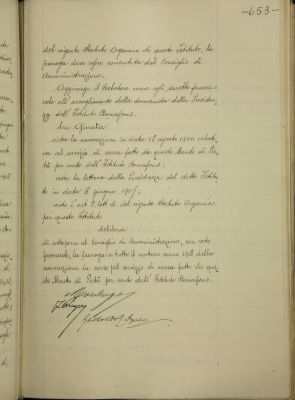 -653-
del vigente Statuto Organico di questo Istituto, la
proroga deve esser consentita dal Consiglio di
Amministrazione.
Aggiunge il Relatore come egli sarebbe favore-
vole all'accoglimento della domanda della Presiden-
za dell'Istituto Bonafous.
La Giunta
vista la convenzione in data 18 agosto 1900 relati-
va al servizio di cassa fatto da questo Monte di Pie-
tà per conto dell'Istituto Bonafous;
vista la lettera della Presidenza del detto Istitu-
to in data 8 giugno 1907;
visto l'art. 8, lett. d. del vigente Statuto Organico
per questo Istituto
delibera
di sottoporre al Consiglio di Amministrazione, con voto
favorevole, la proroga a tutto il venturo anno 1908 della
convenzione in corso pel servizio di cassa fatto da que-
sto Monte di Pietà per conto dell'Istituto Bonafous.